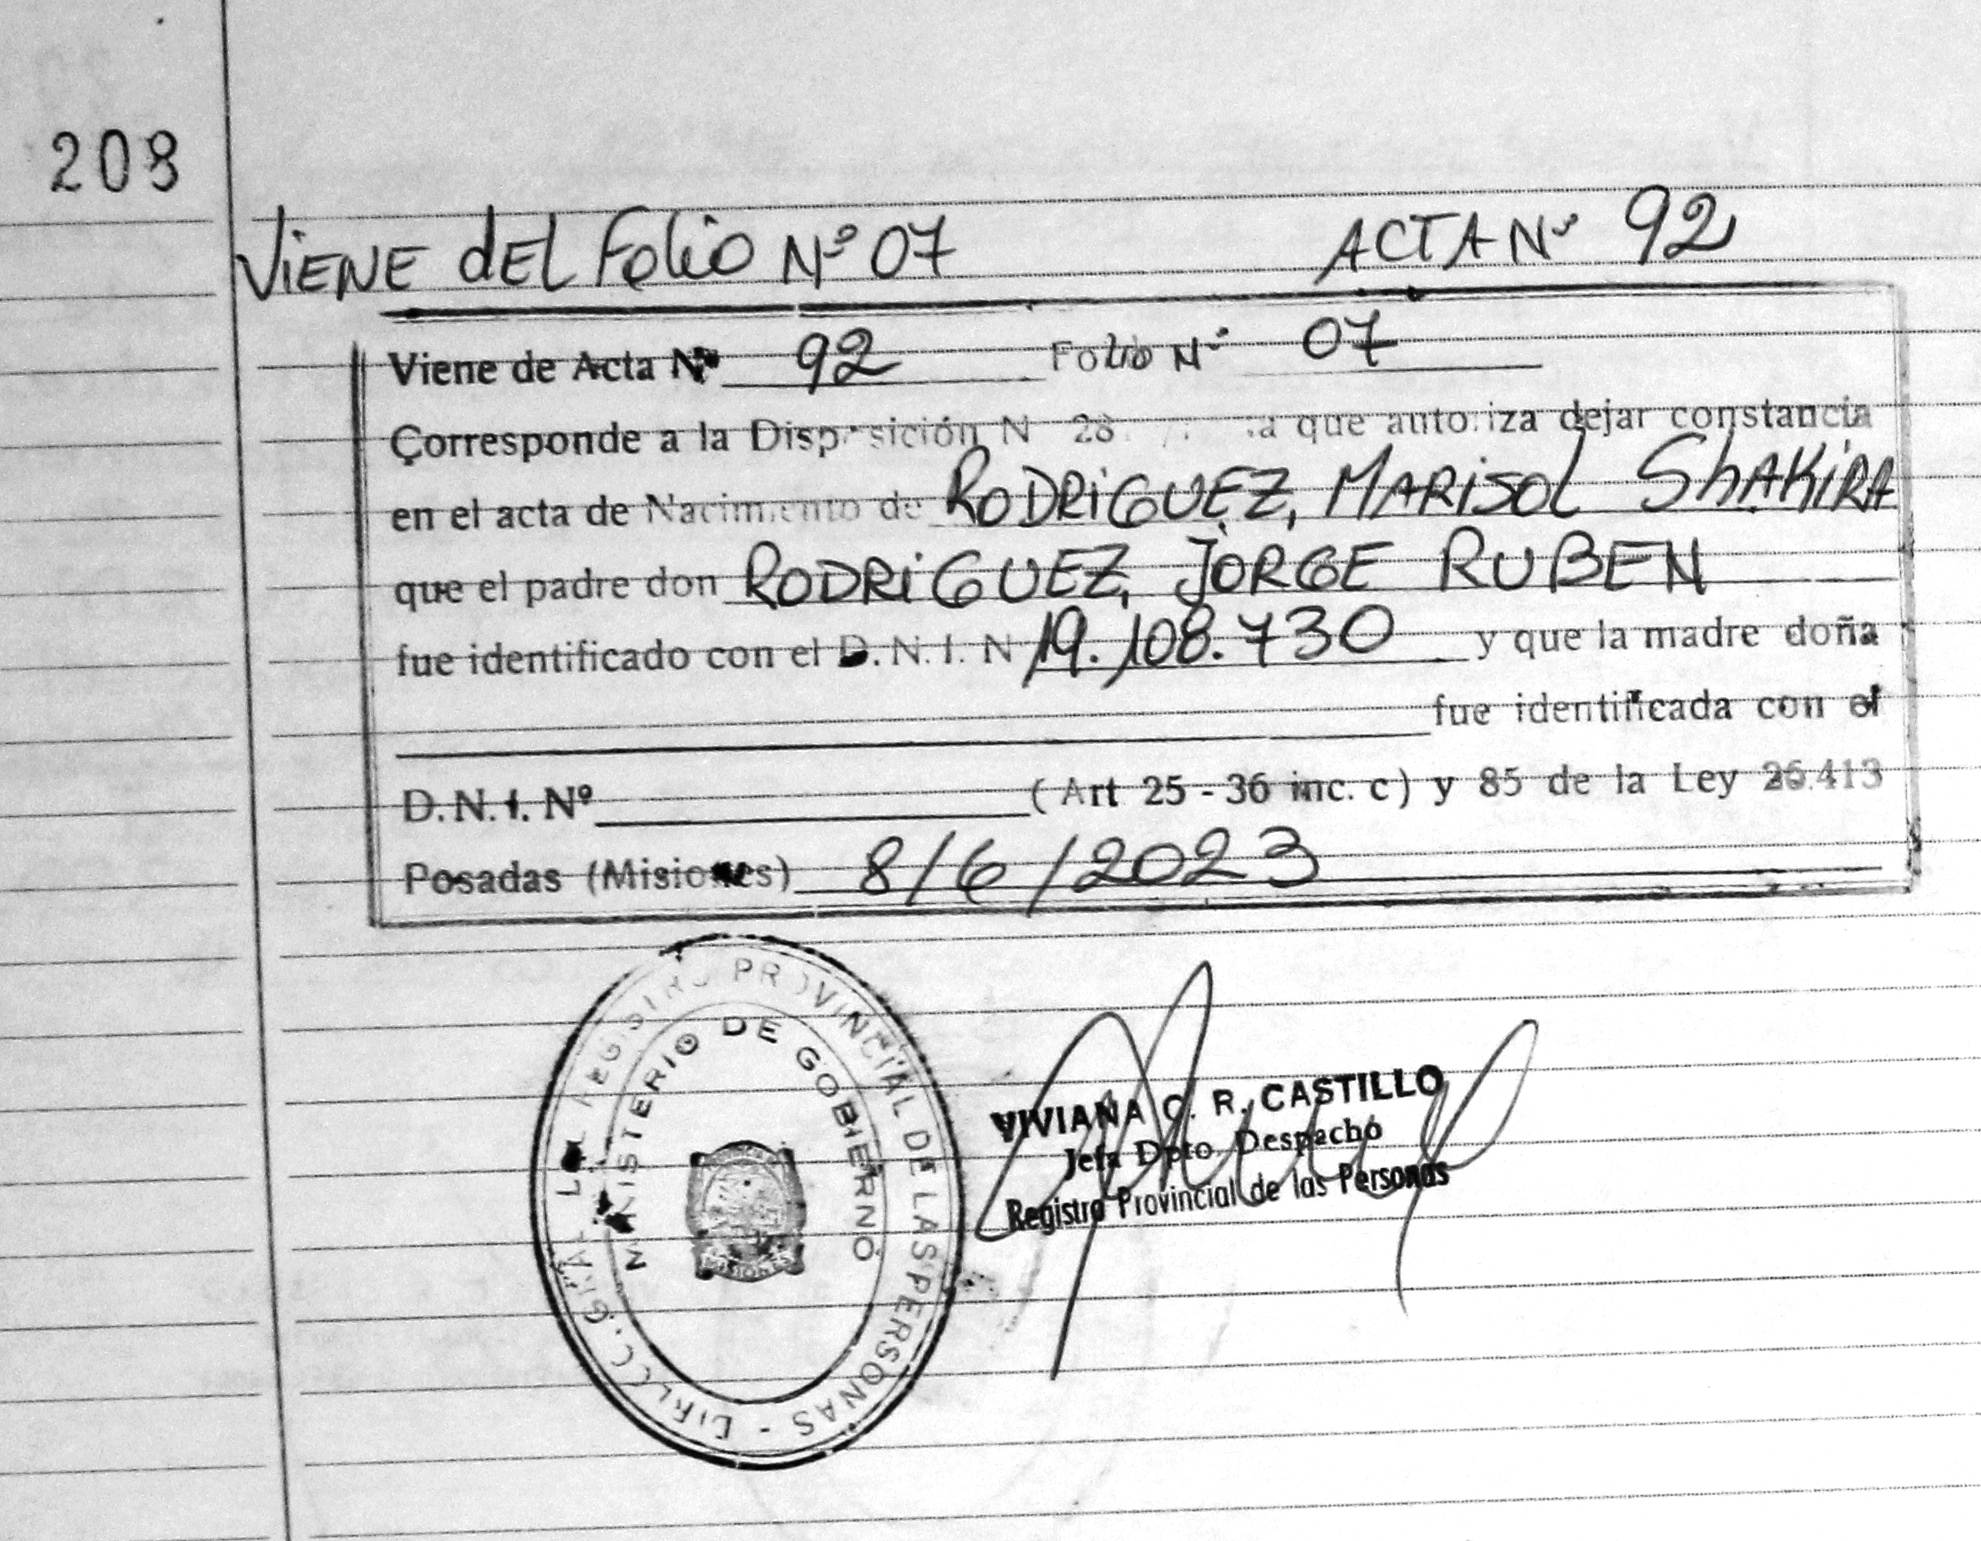 208
ViENE dEL Folio Nº 07 ACTA Nº 92
Viene de Acta Nº 92 Folio Nº 07
Corresponde a la Disposición N 28 la que autoriza dejar constancia
en el acta de Nacimiento de RODRiGUEZ, MARiSOL ShAKiRA
que el padre don RODRiGUEZ, JORGE RUBEN
fue identificado con el D.N.I. N 19.108.730 y que la madre doña
fue identificada con el
D.N.I. Nº ( Art 25 - 36 inc. c ) y 85 de la Ley 26.413
Posadas (Misiones) 8/6/2023
REGISTRO PROVINCIAL DE LAS PERSONAS -
MINISTERIO DE GOBIERNO
MISIONES
VIVIANA C. R. CASTILLO
Jefa Dpto Despacho
Registro Provincial de las Personas